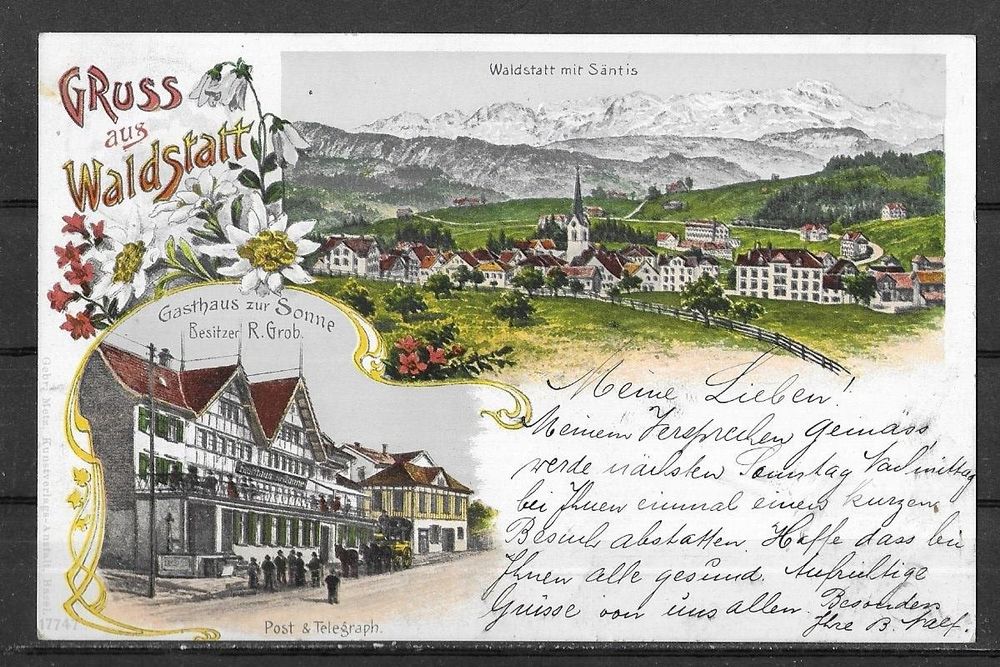 GRUSS
aus
Waldstatt
Waldstatt mit Säntis
Gasthaus zur Sonne
Besitzer R. Grob.
Gebr. Metz, Kunstverlags-Anstalt, Basel.
17747
Post & Telegraph.
Meine Lieben!
Meinem Versprechen Gemäss,
werde nächsten Sonntag Nachmittag
bei Ihnen einmal einen kurzen
Besuch abstatten. Hoffe dass bei
Ihnen alle gesund. Aufrichtige
Grüsse von uns allen. Besonders
Ihre B. Naef.